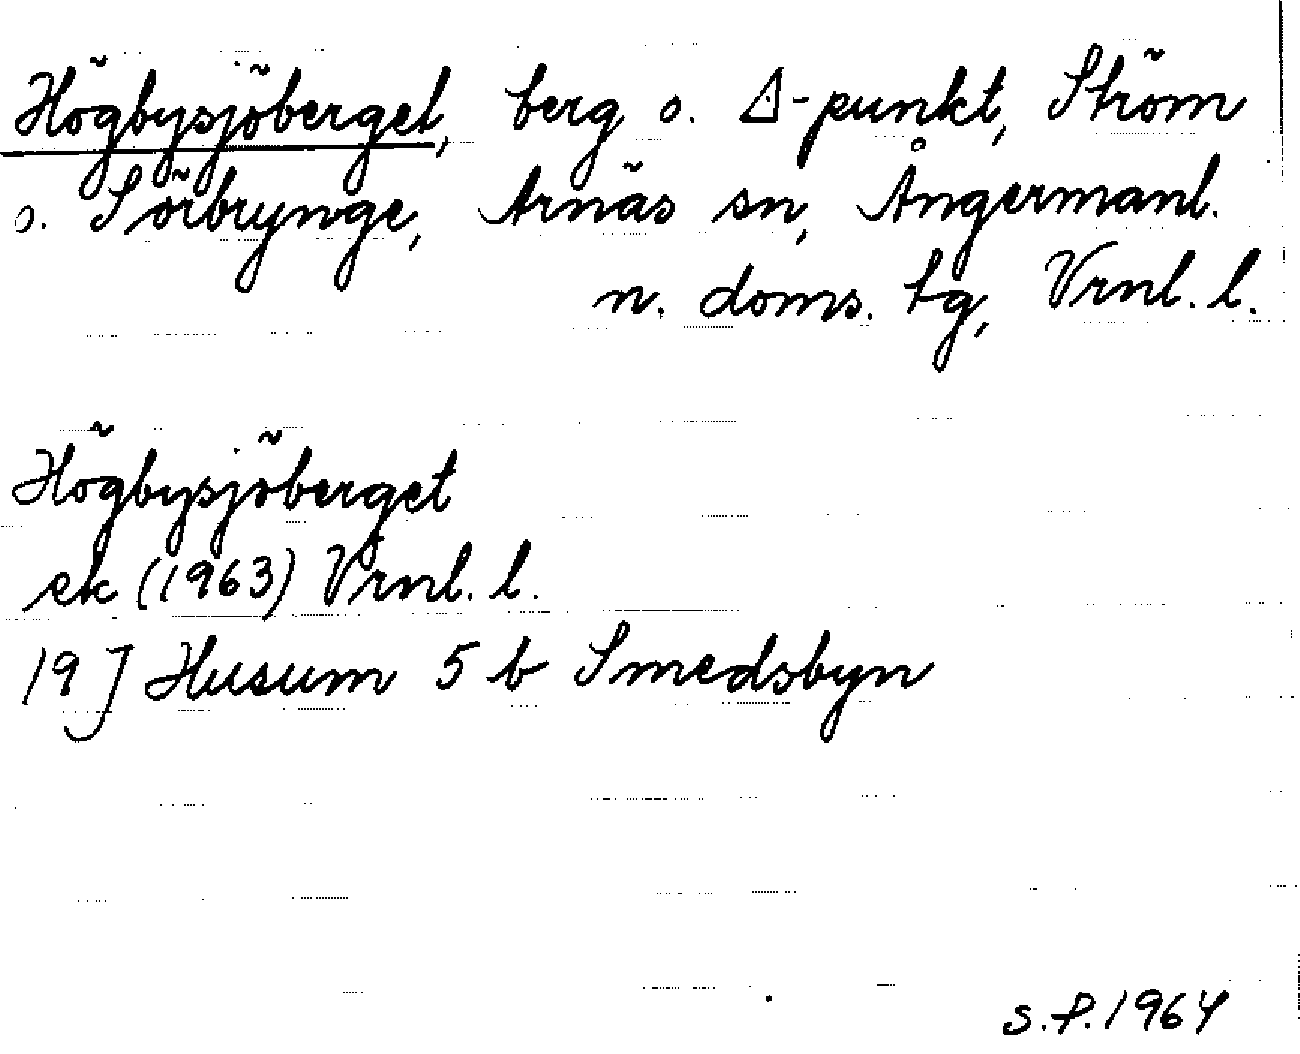 Högbysjöberget, berg o. Δ-punkt, Ström
o. Sörbrynge, Arnäs sn, Ångermanl.
n. doms. tg, Vrnl. l.
Högbysjöberget
ek (1963) Vrnl. l.
19 J Husum 5 b Smedsbyn
S.P. 1964